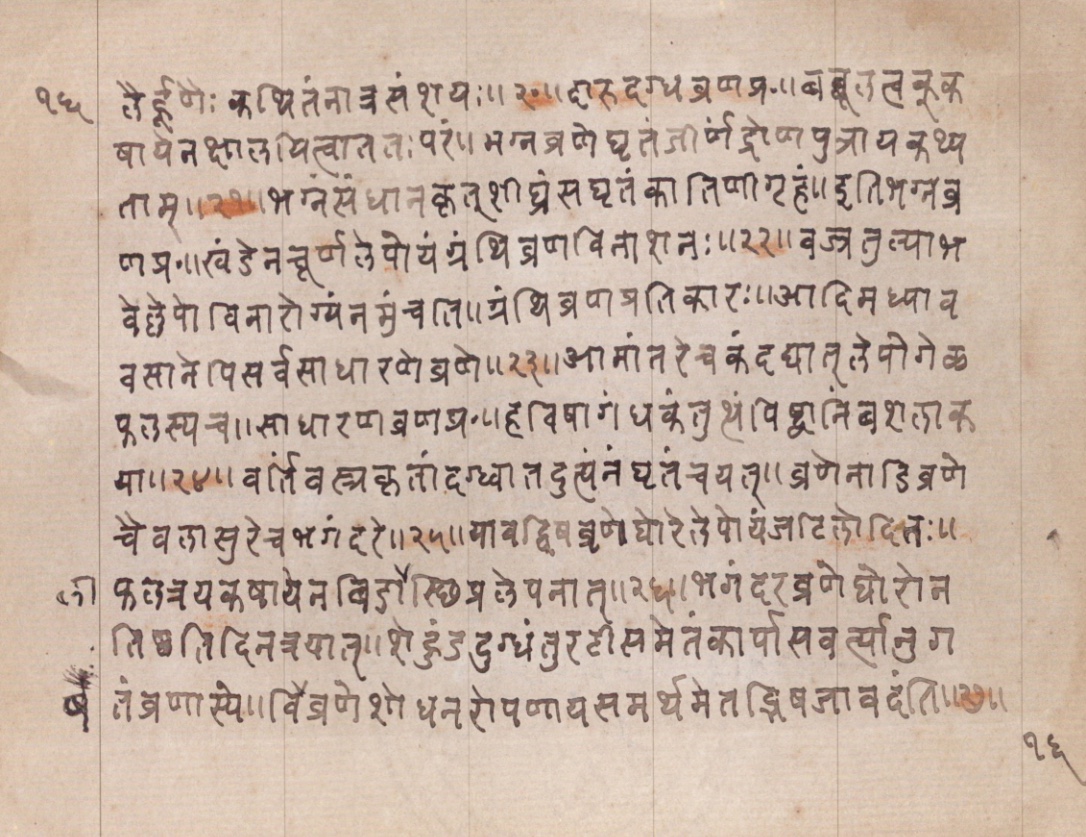 १६ लैर्द्रूणैः कथितंनात्रसंशयः॥२०॥दारुदग्धव्रणप्र॰॥बब्बूलत्वक्क
षायेनक्षालयित्वाततःपरं॥भग्नव्रणेघृतंजीर्णंद्रोणपुत्रायकथ्य
ताम्॥२१॥भग्नंसंधानकृत्शीघ्रंसघृतंकातिणीगृहं॥इतिभग्नव्र
णप्र॰॥खंडेनचूर्णलेपोयंग्रंथिव्रणविनाशनः॥२२॥वज्रतुल्याभ
वेल्लेपोविनारोग्यंनमुंचति॥ग्रंथिव्रणप्रतिकारः॥आदिमध्याव
वसानेपिसर्वसाधारणेव्रणे॥२३॥आमांतरेचकंदद्यात्लेपोगेळ
फलस्यच॥साधारणव्रणप्र॰॥हविषागंधकंतुत्थंपिष्ट्वानिंबशलाक
या॥२४॥वर्तिवस्त्रकृतांदग्ध्वातदुत्पंनंघृतंचयत्॥व्रणेनाडिव्रणे
चैवलासुरेचभगंदरे॥२५॥यावद्विषव्रणेघोरेलेपोयंजटिलोदितः॥
ली फलत्रयकषायेनबिडौस्छिप्रलेपनात्॥२६॥भगंदरव्रणेघोरोन
तिष्ठतिदिनत्रयात्॥शेहुंडदुग्धंतुरटीसमेतंकार्पासवर्त्यानुग
र्ष तंव्रणास्ये॥विव्रणेशोधनरोपणायसमर्थमेतद्भिषजावदंति॥२७॥
१६